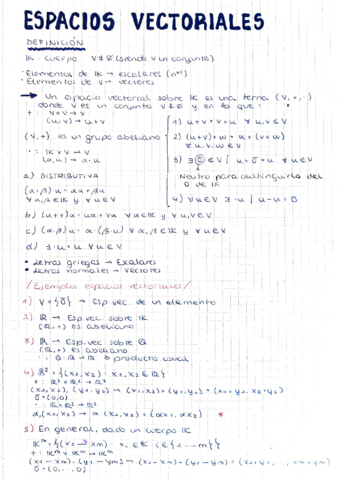 ESPACIOS VECTORIALES
DEFINICIÓN
IK - cuerpo V ≠ ∅ (siendo V un conjunto)
· Elementos de IK → escalares (nos)
· Elementos de V → vectores
→ Un espacio vectorial sobre IK es una terna (V, +, ·)
donde V es un conjunto V ≠ ∅ y en la que:
+ V×V → V
(u,v) → u+v
1) u+v = v+u ∀ u,v ∈ V
(V,+) es un grupo abeliano
2) (u+v)+w = u+(v+w)
∀ u,v,w ∈ V
· : IK×V → V
(α,u) → α·u
3) ∃ 0̄ ∈ V / u+0̄ = u ∀ u ∈ V
Neutro para distinguirlo del
0 de IK
a) DISTRIBUTIVA
(α+β)u = αu+βu
∀ α,β ∈ IK y ∀ u ∈ V
4) ∀ u ∈ V ∃ -u / u-u = 0̄
b) (u+v)α = uα+vα ∀ α ∈ IK y ∀ u,v ∈ V
c) (α·β)u = α·(β·u) ∀ α,β ∈ IK y ∀ u ∈ V
d) 1·u = u ∀ u ∈ V
• Letras griegas → Escalares
• Letras normales → Vectores
/ Ejemplos espacios vectoriales /
1) V = {0̄} → Esp vec. de un elemento
2) IR → Esp. vec. sobre IK
(IR,+) es abeliano
3) IR → Esp. vec. sobre Q
(IR,+) es abeliano
producto usual
4) IR² = {(x1, x2) : x1, x2 ∈ IR}
+ : IR² × IR² → IR²
(x1, x2), (y1, y2) → (x1, x2)+(y1, y2) = (x1+y1, x2+y2)
0̄ = (0,0)
α, (x1, x2) → α·(x1, x2) = (αx1, αx2)
5) En general, dado un cuerpo IK
+ : IKᵐ × IKᵐ → IKᵐ
0̄ = (0, ..., 0)